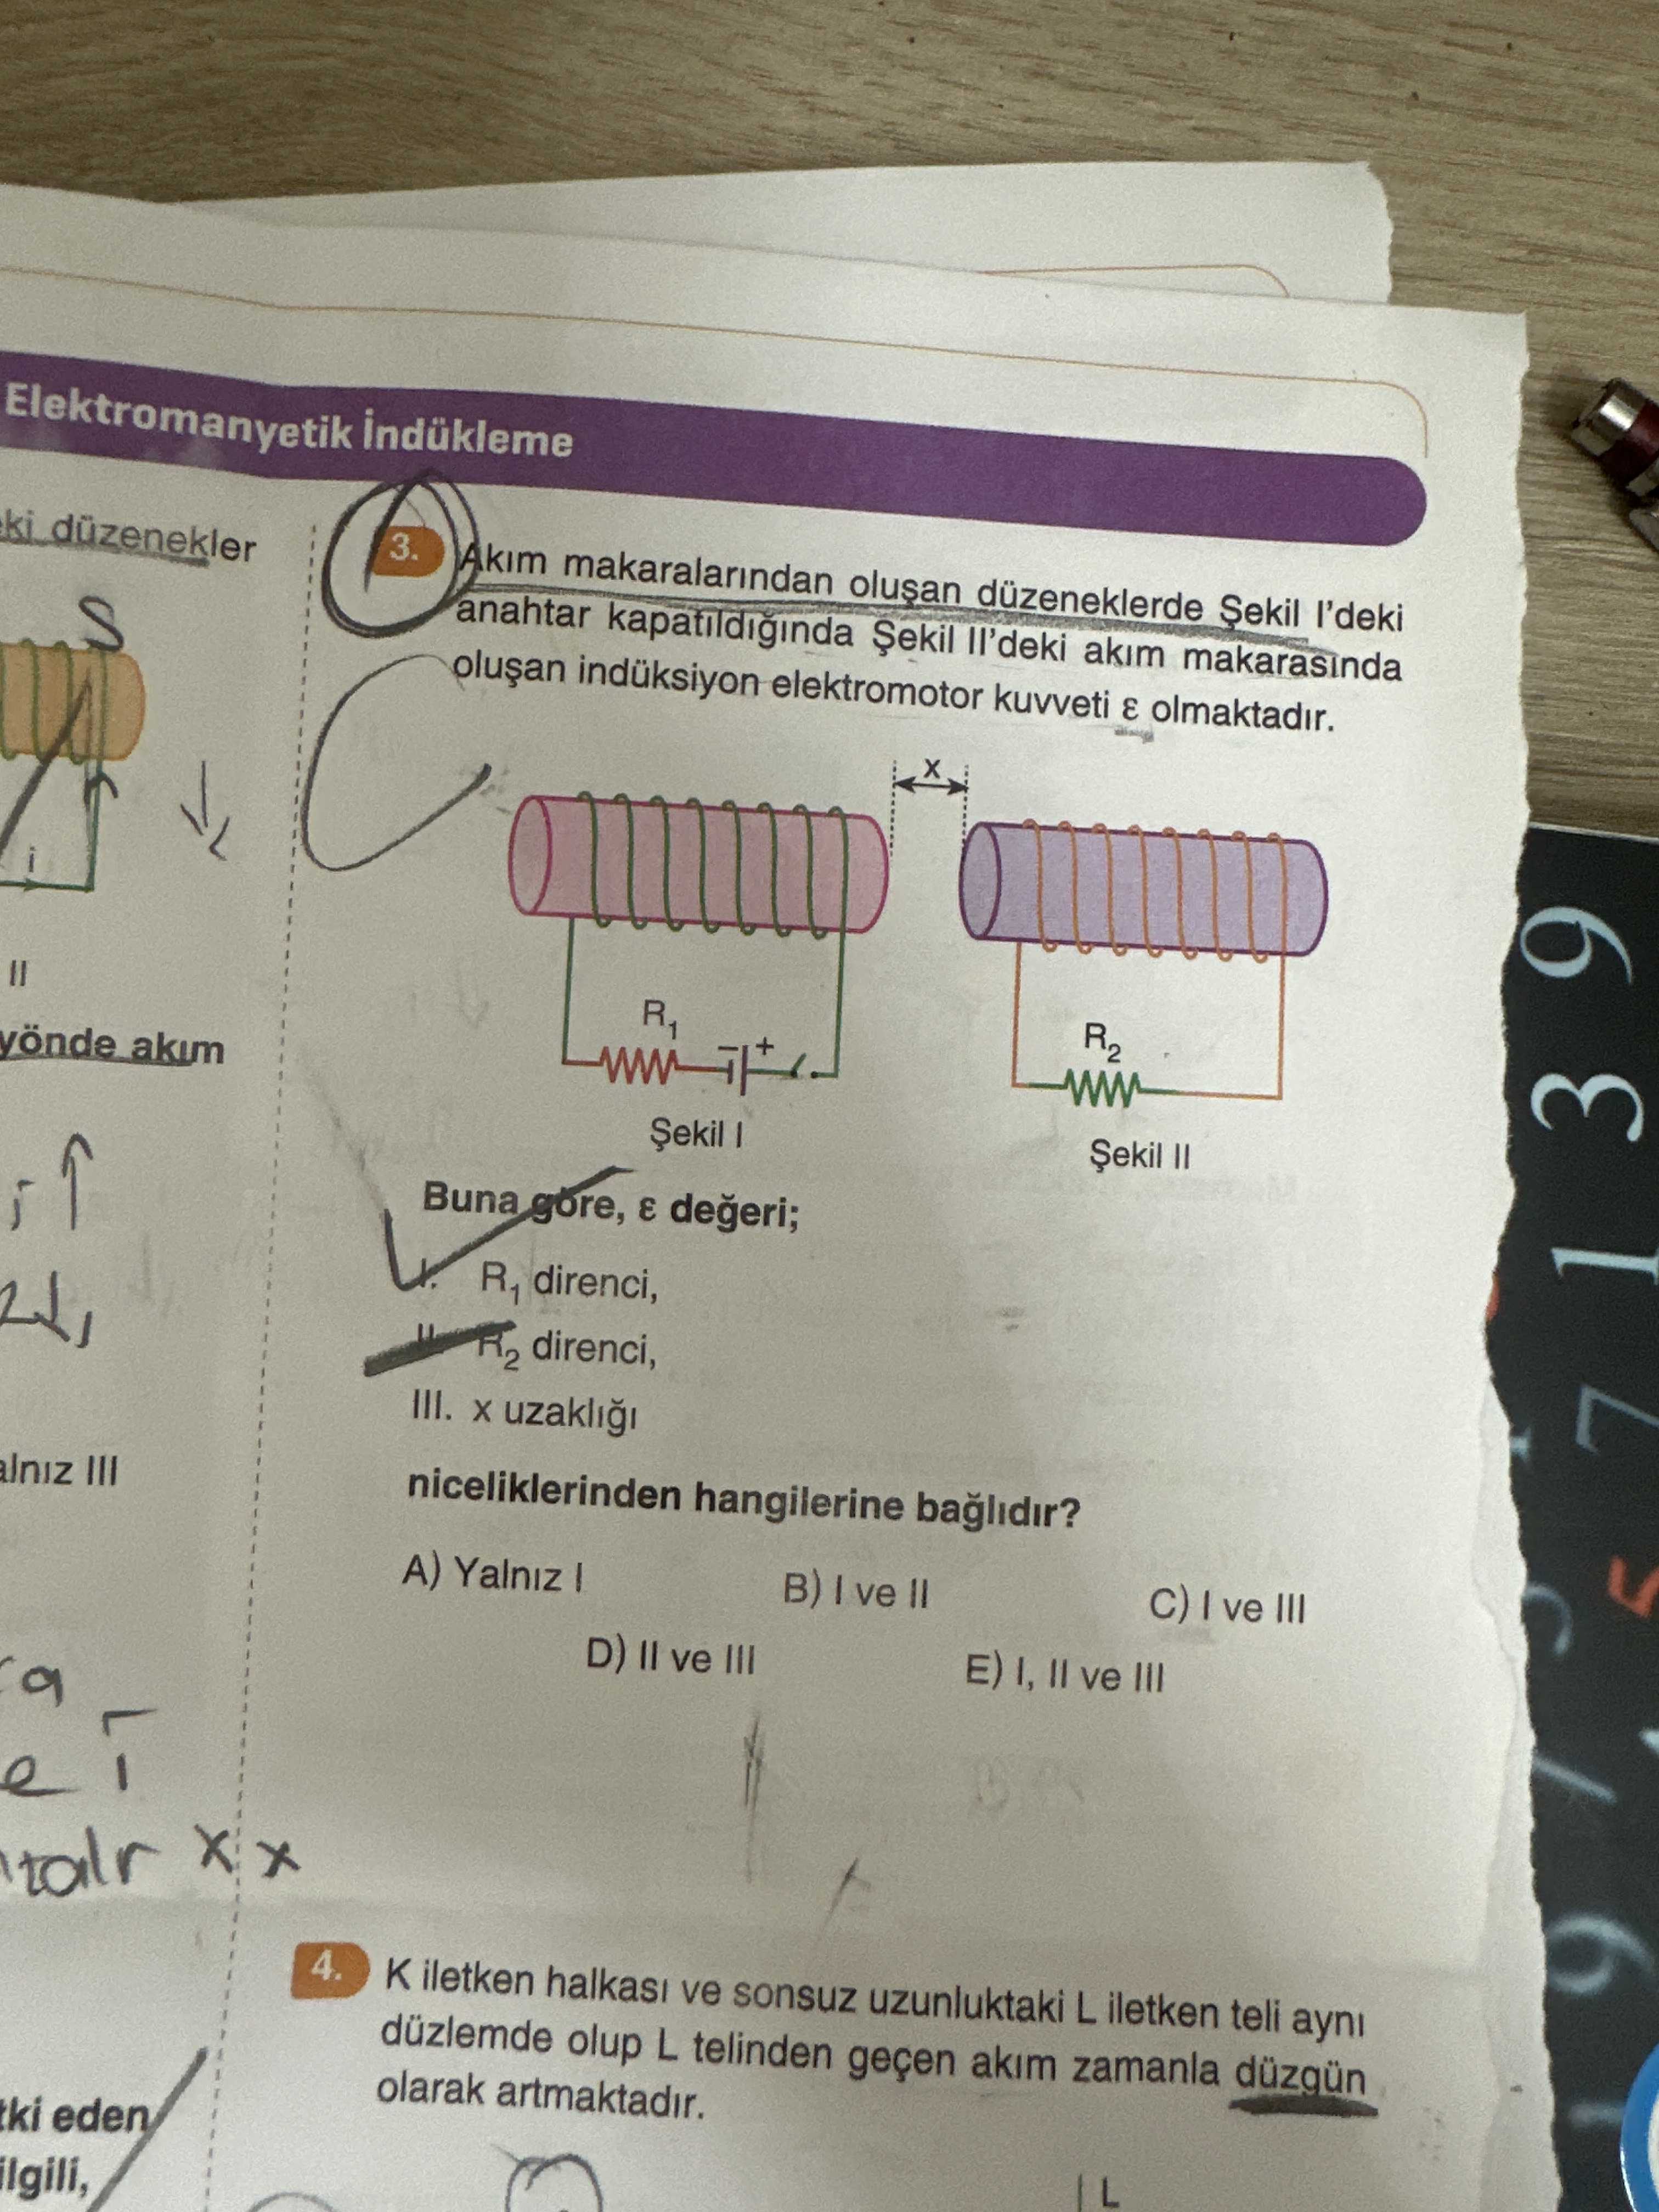 Elektromanyetik İndükleme
eki düzenekler
S
i
II
yönde akım
i ↑
alnız III
e i
xx
tki eden
ilgili,
3. Akım makaralarından oluşan düzeneklerde Şekil I'deki
anahtar kapatıldığında Şekil II'deki akım makarasında
oluşan indüksiyon elektromotor kuvveti ε olmaktadır.
x
R₁
- +
Şekil I
R₂
Şekil II
Buna göre, ε değeri;
I. R₁ direnci,
II. R₂ direnci,
III. x uzaklığı
niceliklerinden hangilerine bağlıdır?
A) Yalnız I B) I ve II C) I ve III
D) II ve III E) I, II ve III
4. K iletken halkası ve sonsuz uzunluktaki L iletken teli aynı
düzlemde olup L telinden geçen akım zamanla düzgün
olarak artmaktadır.
L
9
3
1
7